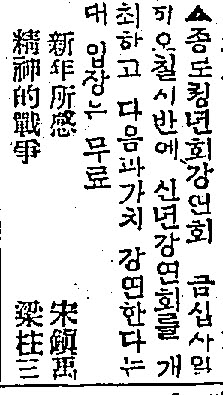 ▲종로청년회강연회 금십사일
하오칠시반에 신년강연회를 개
최하고 다음과가치 강연한다는
대 입장는 무료
新年所感 宋鎭禹
精神的戰爭 梁柱三